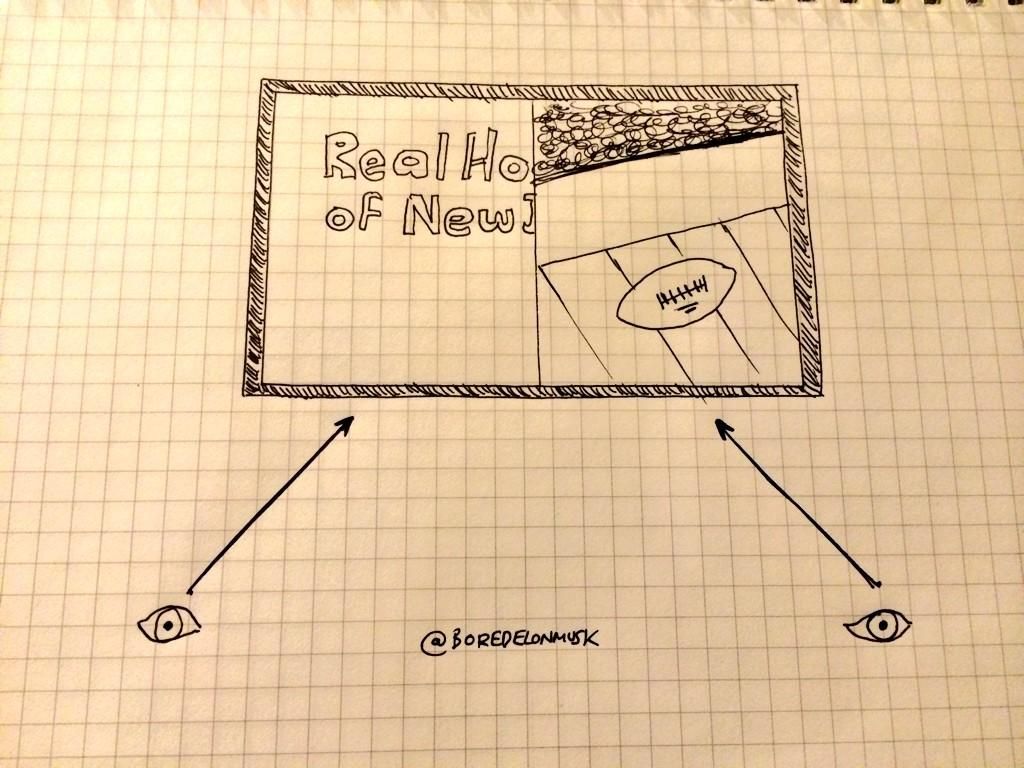 Real Ho
of New J
@BOREDELONMUSK